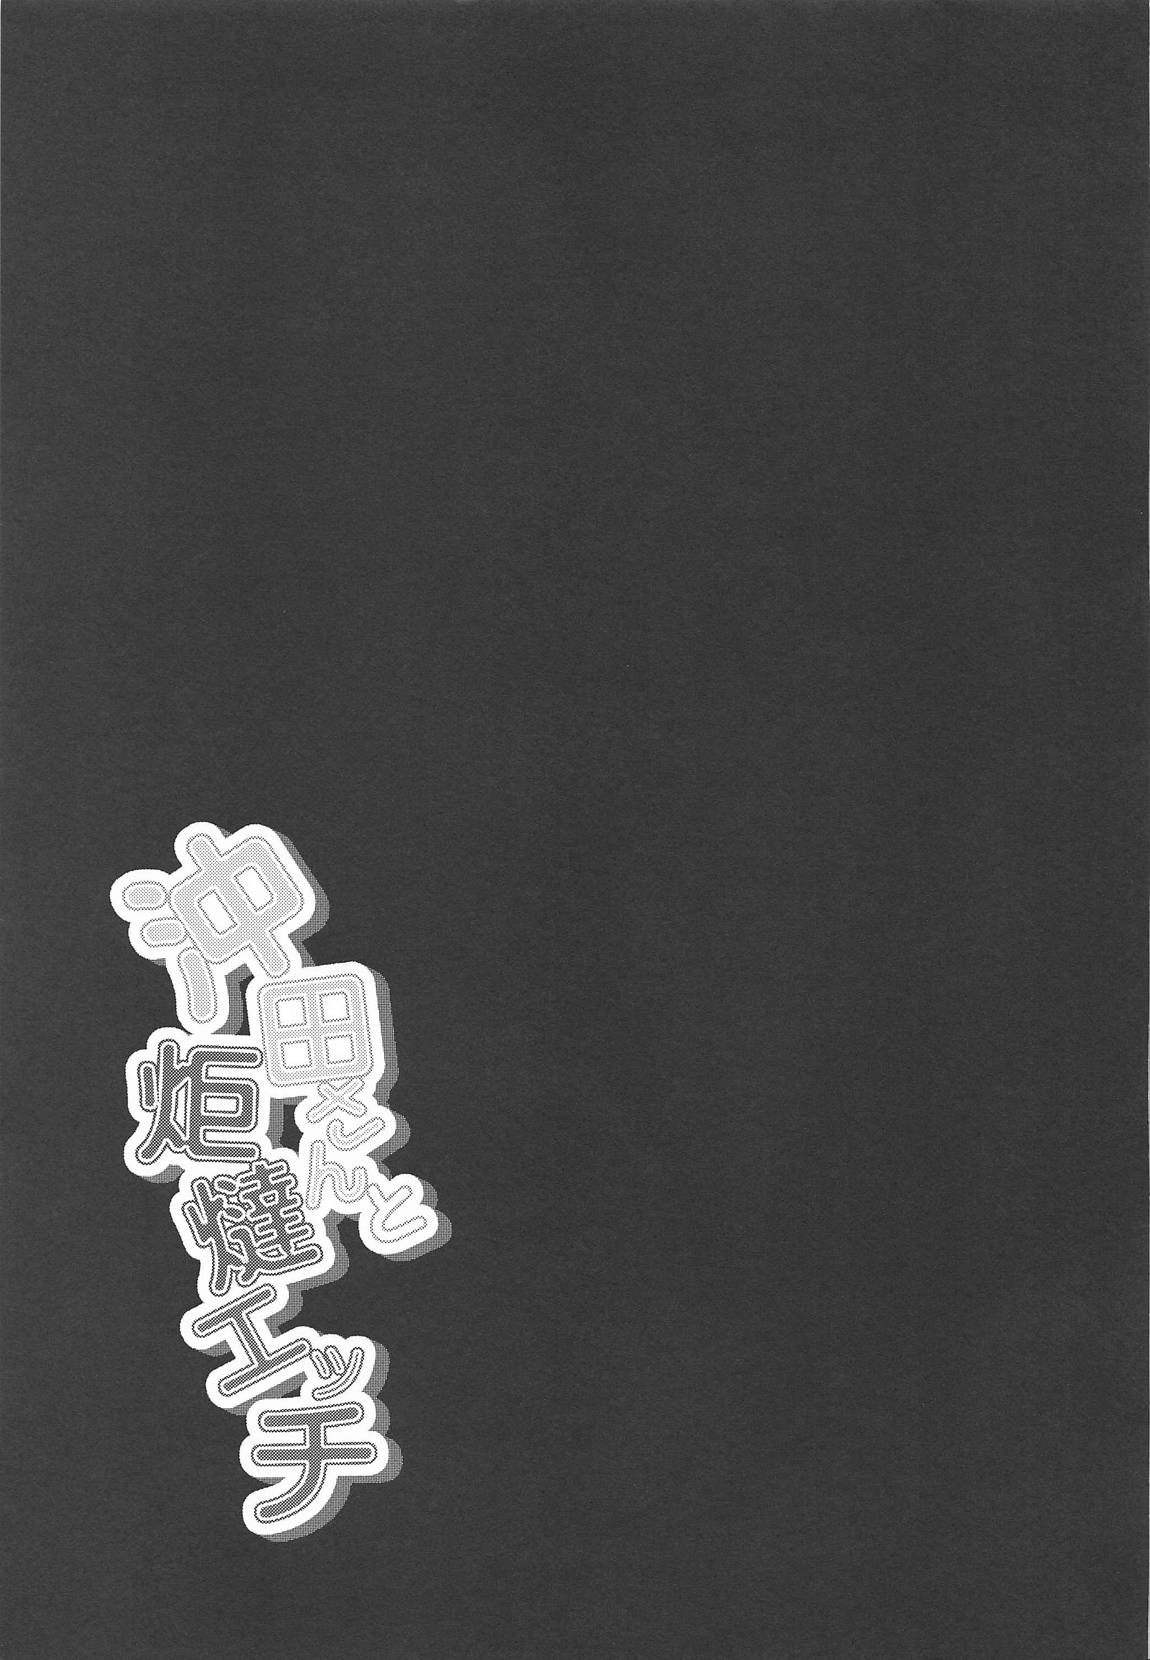 沖田さんと
炬燵エッチ